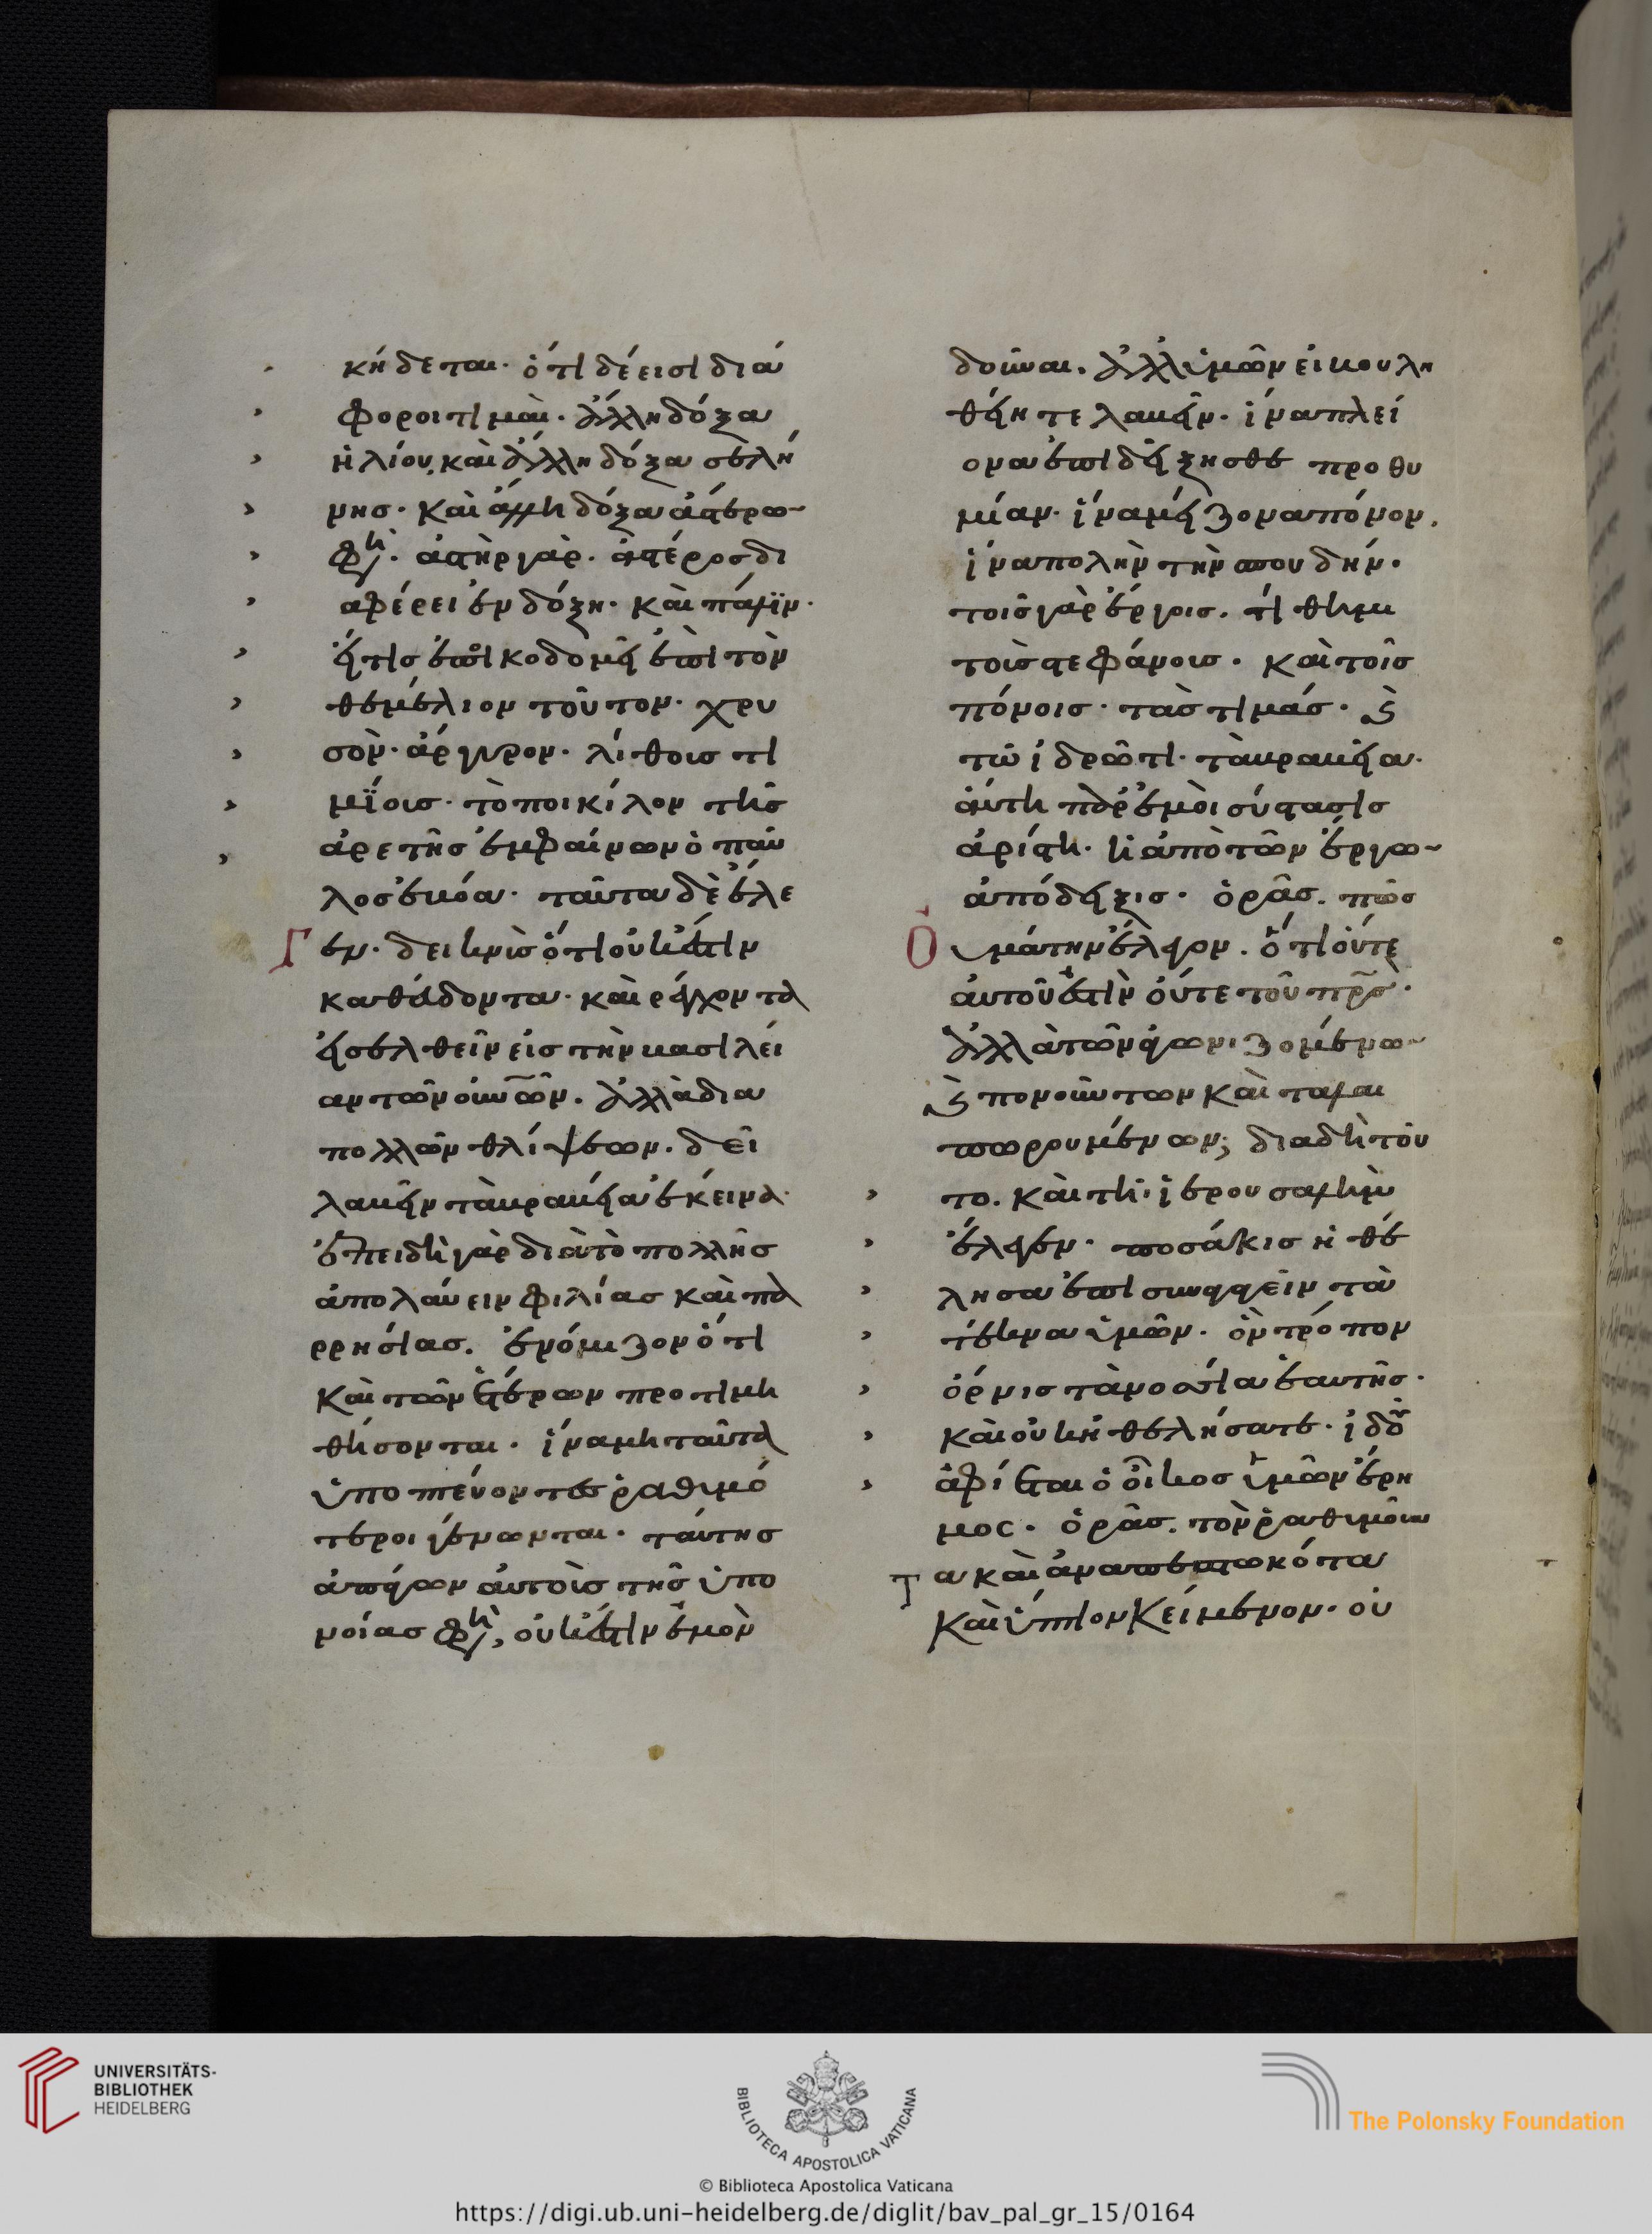 κήδεται· ὅτι δέ εἰσι διά
φοροι τιμαὶ· ἄλλη δόξα
ἡλίου, καὶ ἄλλη δόξα σελή
νης· καὶ ἄλλη δόξα ἀστέρων
φησὶ· ἀστὴρ γὰρ· ἀστέρος δι
αφέρει ἐν δόξη· καὶ πάλιν·
εἴ τις ἐποικοδομεῖ ἐπὶ τὸν
θεμέλιον τοῦτον· χρυ
σὸν· ἄργυρον· λίθοις τι
μίοις· τὸ ποικίλον τῆς
ἀρετῆς ἐμφαίνων ὁ παῦ
λος ἐβόα· ταῦτα δὲ ἔλε
γεν· δεικνὺς ὅτι οὐκ ἔστιν
καθεύδοντα· καὶ ῥέγχοντα
εἰσελθεῖν εἰς τὴν βασιλεί
αν τῶν οὐνῶν. ἀλλὰ δια
πολλῶν θλίψεων. δεῖ
λαβεῖν τὰ βραβεῖα ἐκεῖνα·
ἐπειδὴ γὰρ διὰ τὸ πολλῆς
ἀπολαύειν φιλίας καὶ πα
ρρησίας. ἐνόμιζον ὅτι
καὶ τῶν ἑτέρων προτιμη
θήσονται. ἵνα μὴ ταῦτα
ὑποπτεύοντες ῥαθυμό
τεροι γένωνται· ταύτης
ἀπάγων αὐτοὺς τῆς ὑπο
νοίας φησὶ, οὐκ ἔστιν ἐμὸν
δοῦναι. ἀλλ' ὑμῶν εἰ βουλη
θείητε λαβεῖν· ἵνα πλεί
ονα ἐπιδείξησθε προθυ
μίαν· ἵνα μείζονα πόνον.
ἵνα πολὴν τὴν σπουδήν·
τοῖς γὰρ ἔργοις. τίθημι
τοὺς στεφάνους. καὶ τοῖς
πόνοις· τὰς τιμάς· καὶ
τῶ ἱδρῶτι· τὰ βραβεῖα·
αὕτη παρ' ἐμοὶ σύστασις
ἀρίστη· ἡ ἀπὸ τῶν ἔργων
ἀπόδειξις· ὁρᾶς. πῶς
οὐ μάτην ἔλεγον. ὅτι οὔτε
αὐτοῦ ἐστὶν οὔτε τοῦ πρσ·
ἀλλὰ τῶν ἀγωνιζομένων
καὶ πονούντων καὶ ταλαι
πωρουμένων; διαδὴ τοῦ
το. καὶ τῆ ἱερουσαλὴμ
ἔλεγεν· ποσάκις ἠθέ
λησα ἐπισυναγαγεῖν τὰ
τέκνα ὑμῶν· ὃν τρόπον
ὄρνις τὰ νοσσία ἑαυτῆς·
καὶ οὐκ ἠθελήσατε· ἰδοὺ
ἀφίεται ὁ οἶκος ὑμῶν ἔρη
μος· ὁρᾶς. τὸν ῥαθυμοῦν
τα καὶ ἀναπεπτωκότα
καὶ ὕπτιον κείμενον· οὐ
UNIVERSITÄTS-
BIBLIOTHEK
HEIDELBERG
BIBLIOTECA APOSTOLICA VATICANA
The Polonsky Foundation
© Biblioteca Apostolica Vaticana
https://digi.ub.uni-heidelberg.de/diglit/bav_pal_gr_15/0164